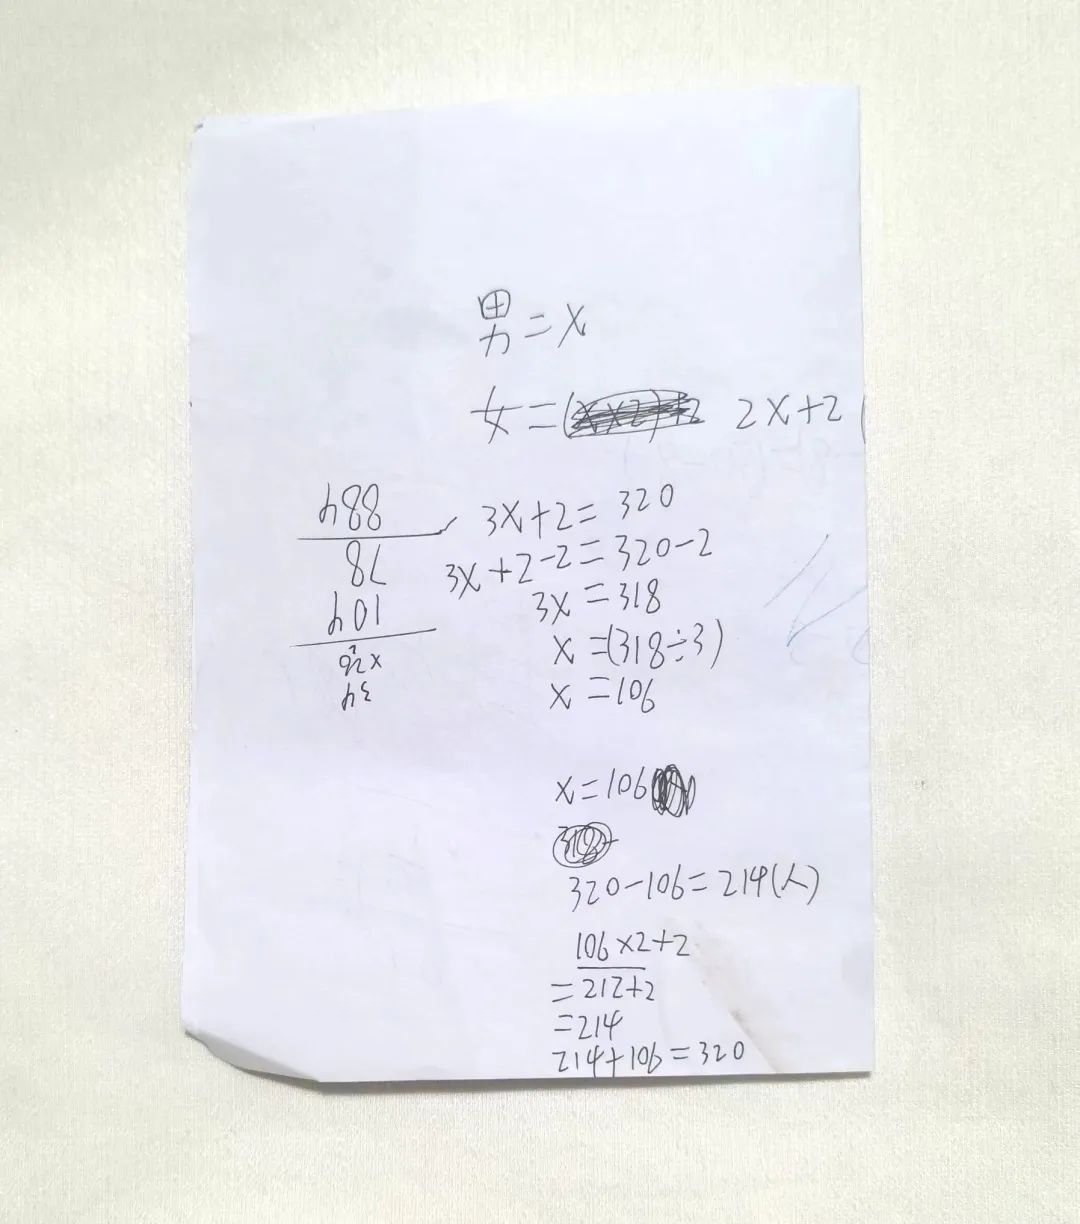 男=x
女= 2x+2
3x+2=320
3x+2-2=320-2
3x=318
x=(318÷3)
x=106
x=106
320-106=214(人)
106×2+2
=212+2
=214
214+106=320
34
×26
104
78
884